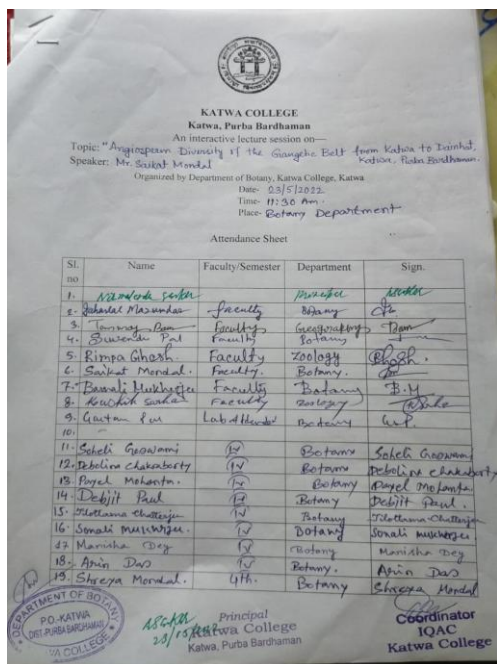 KATWA COLLEGE
Katwa, Purba Bardhaman
An interactive lecture session on—
Topic: "Angiosperm Diversity of the Gangetic Belt from Katwa to Dainhat,
Speaker: Mr. Saikat Mondal Katwa, Purba Bardhaman.
Organized by Department of Botany, Katwa College, Katwa
Date- 23/5/2022
Time- 11:30 Am.
Place- Botany Department
Attendance Sheet
Sl. no Name Faculty/Semester Department Sign.
1. Principal
2. Faculty Botany
3. Faculty Geography
4. Suvendu Pal Faculty Botany
5. Rimpa Ghosh. Faculty Zoology Ghosh.
6. Saikat Mondal. Faculty. Botany.
7. Barnali Mukherjee Faculty Botany B.M
8. Koushik Saha Faculty Zoology
9. Lab Attendent Botany
10.
11. Soheli Goswami IV Botany Soheli Goswami
12. Debolina Chakraborty IV Botany Debolina Chakraborty
13. Payel Mohanta. IV Botany Payel Mohanta.
14. Debjit Paul IV Botany Debjit Paul.
15. Tilottama Chatterjee IV Botany Tilottama Chatterjee
16. Sonali Mukherjee. IV Botany Sonali Mukherjee
17 Manisha Dey IV Botany Manisha Dey
18. Arin Das IV Botany. Arin Das
19. Shreya Mondal. 4th. Botany Shreya Mondal
DEPARTMENT OF BOTANY
P.O.-KATWA
DIST.-PURBA BARDHAMAN
KATWA COLLEGE
23/5/2022
Principal
Katwa College
Katwa, Purba Bardhaman
Coordinator
IQAC
Katwa College